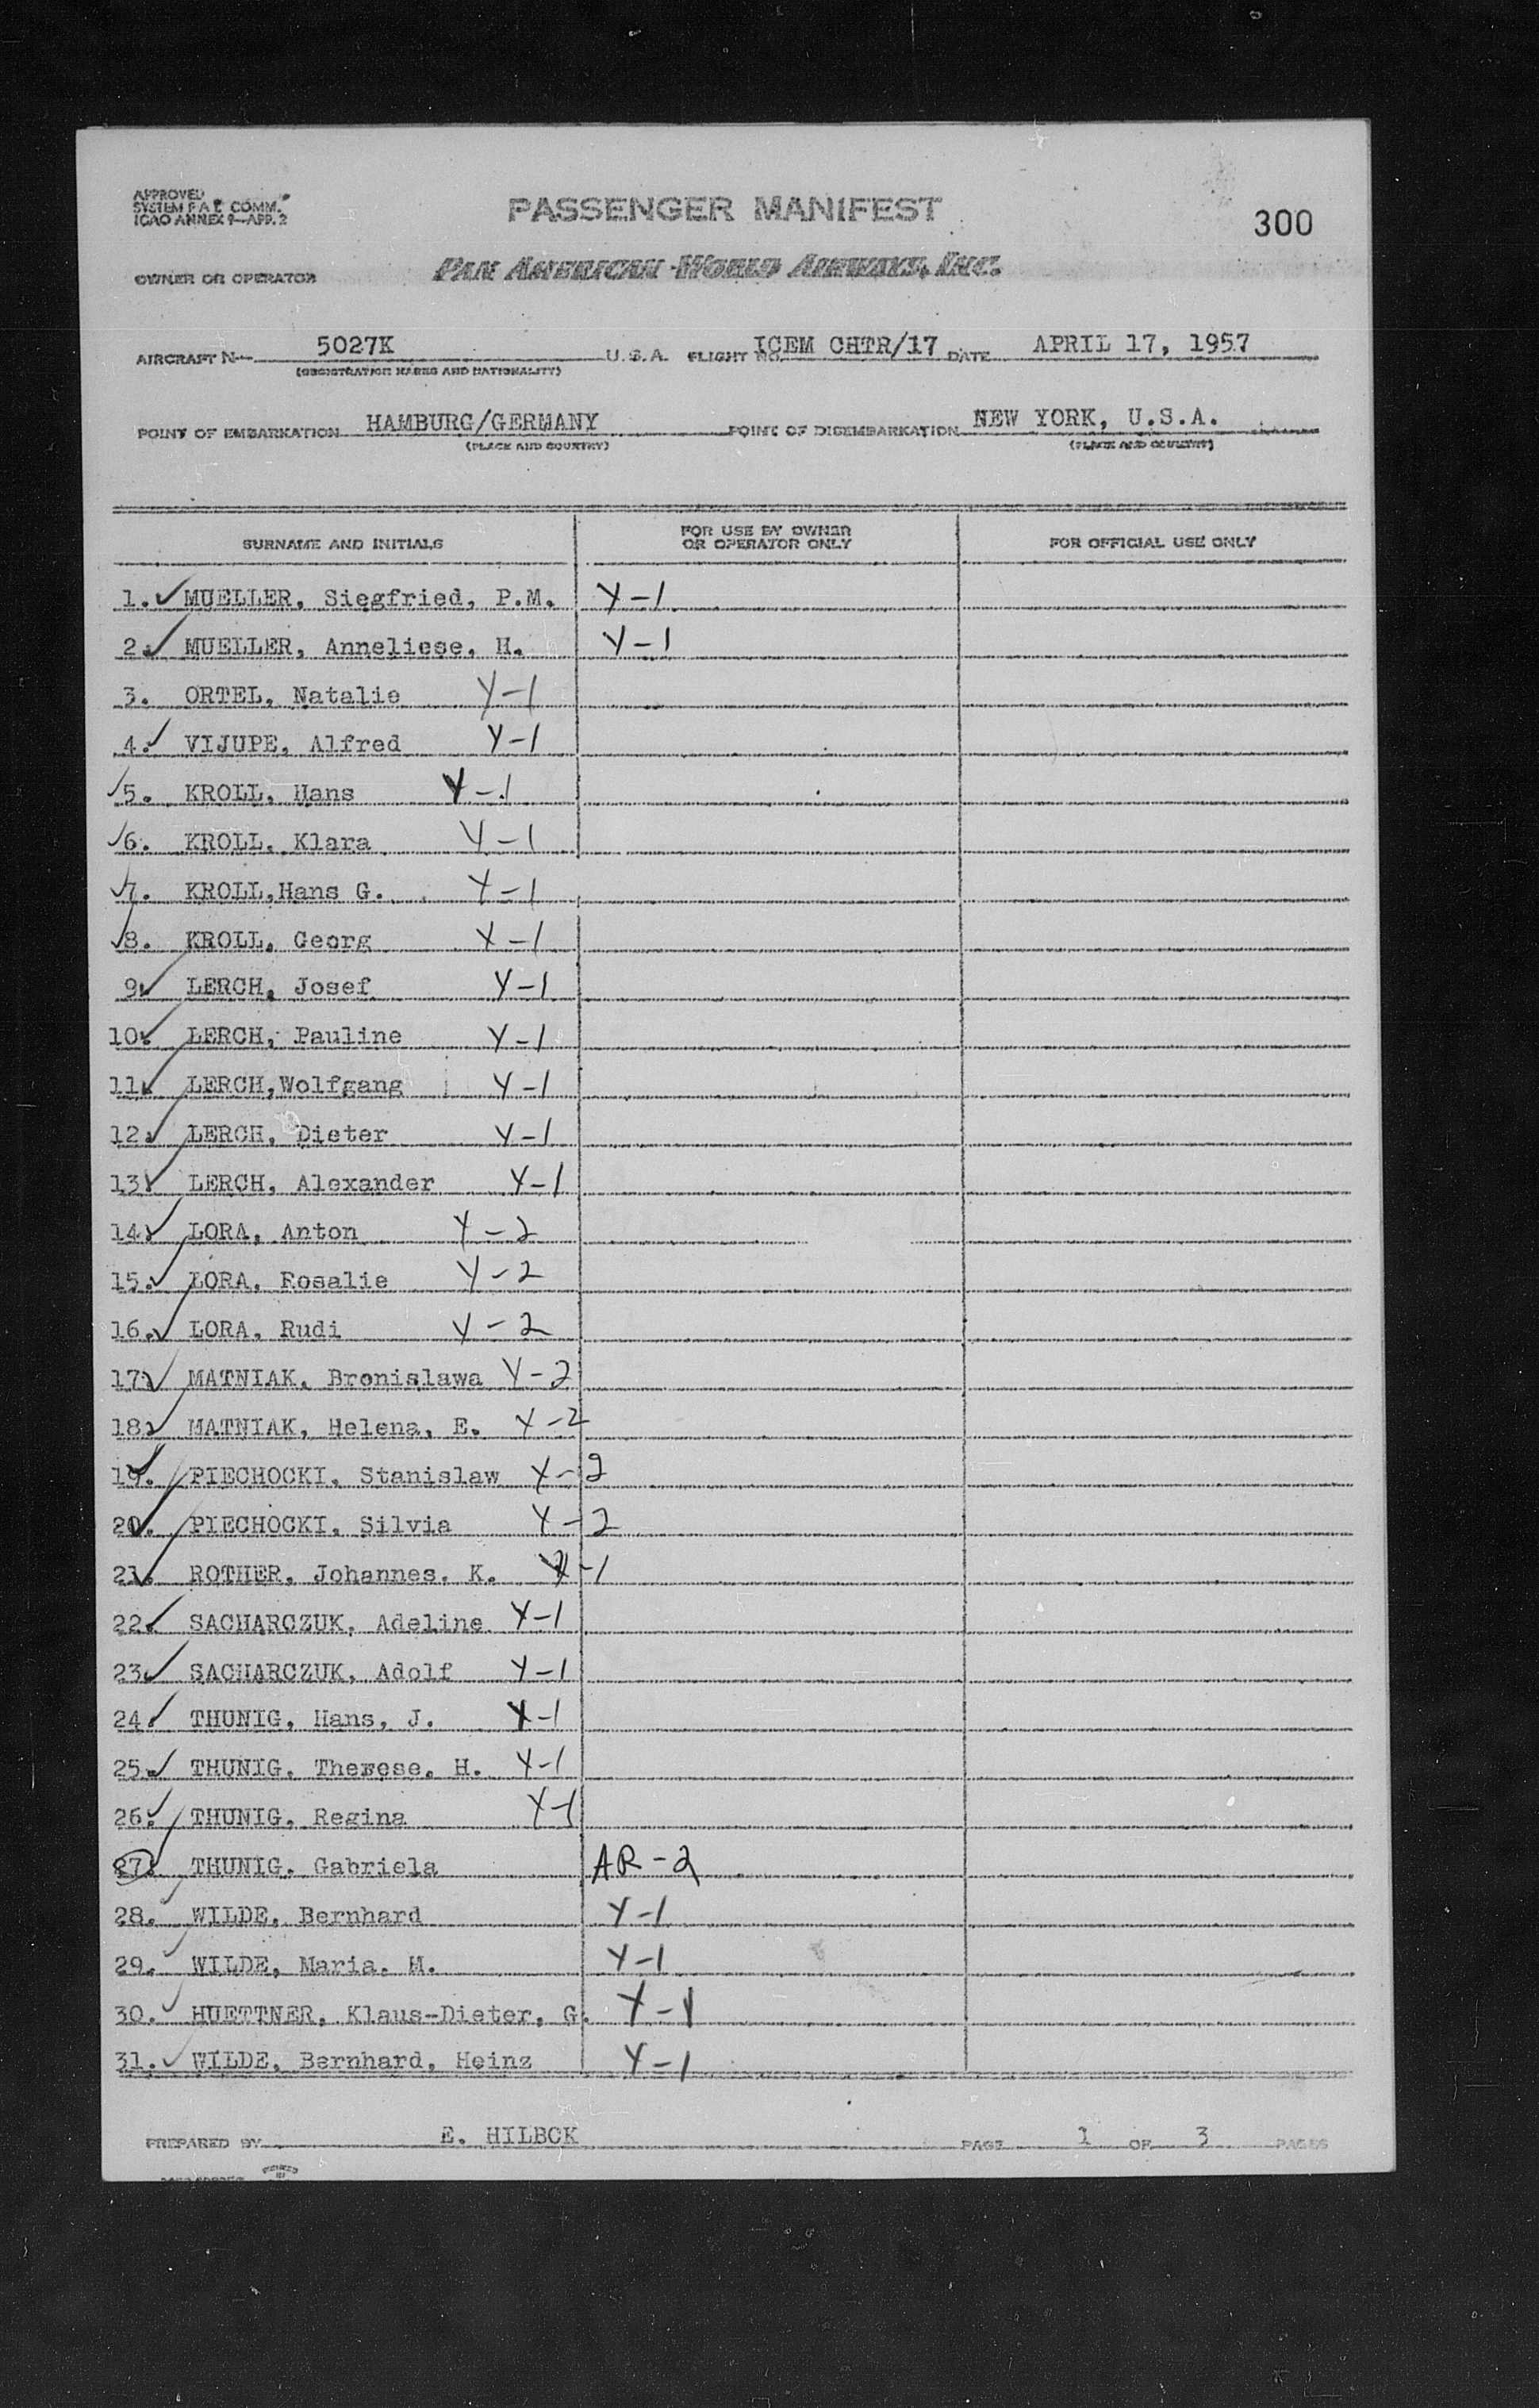 APPROVED
SYSTEM F A L COMM.
ICAO ANNEX 9—APP. 2
PASSENGER MANIFEST
300
OWNER OR OPERATOR PAN AMERICAN WORLD AIRWAYS, INC.
AIRCRAFT N— 5027K U. S. A. FLIGHT NO. ICEM CHTR/17 DATE APRIL 17, 1957
(REGISTRATION MARKS AND NATIONALITY)
POINT OF EMBARKATION HAMBURG/GERMANY POINT OF DISEMBARKATION NEW YORK, U.S.A.
(PLACE AND COUNTRY) (PLACE AND COUNTRY)
SURNAME AND INITIALS FOR USE BY OWNER OR OPERATOR ONLY FOR OFFICIAL USE ONLY
1. ✓ MUELLER, Siegfried, P.M. Y-1
2. ✓ MUELLER, Anneliese, H. Y-1
3. ORTEL, Natalie Y-1
4. ✓ VIJUPE, Alfred Y-1
✓ 5. KROLL, Hans Y-1
✓ 6. KROLL, Klara Y-1
✓ 7. KROLL,Hans G. Y-1
✓ 8. KROLL, Georg Y-1
9. ✓ LERCH, Josef Y-1
10. ✓ LERCH, Pauline Y-1
11. ✓ LERCH,Wolfgang Y-1
12. ✓ LERCH, Dieter Y-1
13. ✓ LERCH, Alexander Y-1
14. ✓ LORA, Anton Y-2
15. ✓ LORA, Rosalie Y-2
16. ✓ LORA, Rudi Y-2
17. ✓ MATNIAK, Bronislawa Y-2
18. ✓ MATNIAK, Helena, E. Y-2
19. ✓ PIECHOCKI, Stanislaw Y-2
20. ✓ PIECHOCKI, Silvia Y-2
21. ✓ ROTHER, Johannes, K. Y-1
22. ✓ SACHARCZUK, Adeline Y-1
23. ✓ SACHARCZUK, Adolf Y-1
24. ✓ THUNIG, Hans, J. Y-1
25. ✓ THUNIG, Therese, H. Y-1
26. ✓ THUNIG, Regina Y-1
27. ✓ THUNIG, Gabriela AR-2
28. ✓ WILDE, Bernhard Y-1
29. ✓ WILDE, Maria, M. Y-1
30. ✓ HUETTNER, Klaus-Dieter, G. Y-1
31. ✓ WILDE, Bernhard, Heinz Y-1
PREPARED BY E. HILBCK PAGE 1 OF 3 PAGES